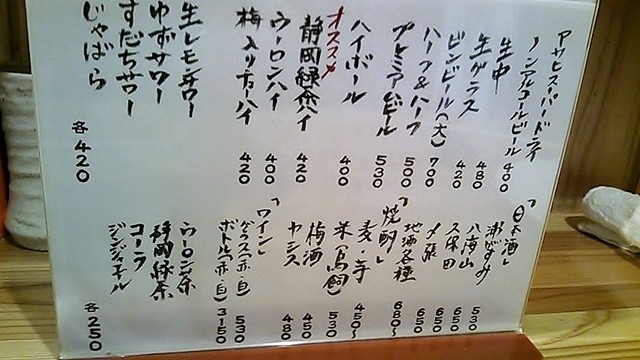 アサヒスーパードライ
ノンアルコールビール 400
生中 480
生グラス 420
ビンビール(大) 700
ハーフ&ハーフ 500
プレミアムビール 530
ハイボール 400
オススメ
静岡緑茶ハイ 420
ウーロンハイ 400
梅入り酎ハイ 420
生レモンサワー
ゆずサワー
すだちサワー
じゃばら
各420
「日本酒」
浦がすみ 530
八海山 650
久保田 650
〆張 650
地酒各種 680〜
「焼酎」
麦・芋 450〜
米(鳥飼) 530
梅酒 450
カシス 480
「ワイン」
グラス(赤・白) 530
ボトル(赤・白) 3150
ウーロン茶
静岡緑茶
コーラ
ジンジャエール
各250